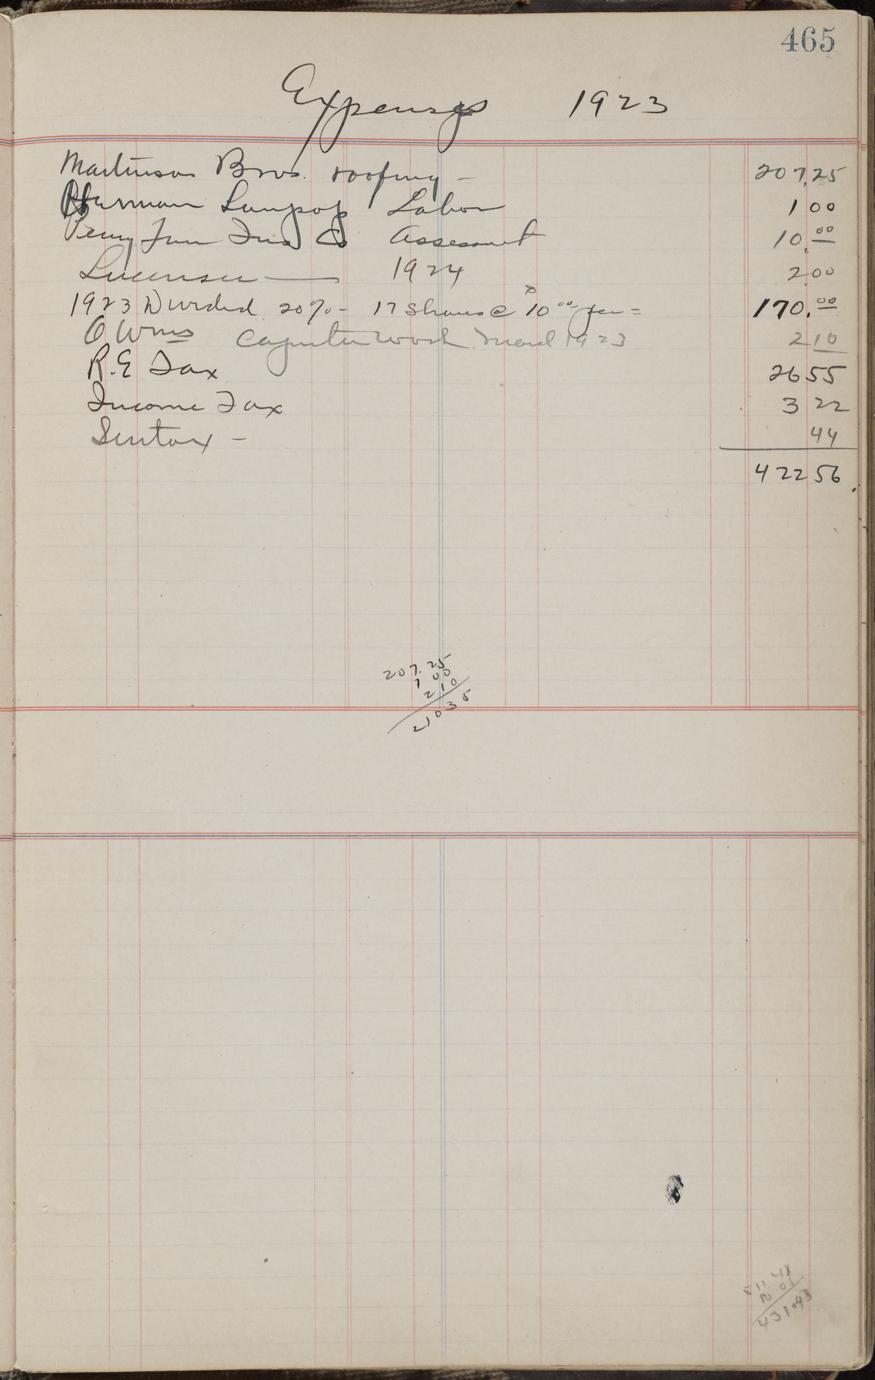 465
Expenses 1923
Martinson Bros. roofing - 207.25
Herman Labor 1 00
Ins Co Assesment 10.00
License — 1924 2 00
1923 Divided 20% - 17 Shares @ 10 00 per = 170.00
O Wms Capenter work 1923 2 10
R.E Tax 26 55
Income Tax 3 22
- 44
422 56
207.25
1 00
2 10
210 35
431.43